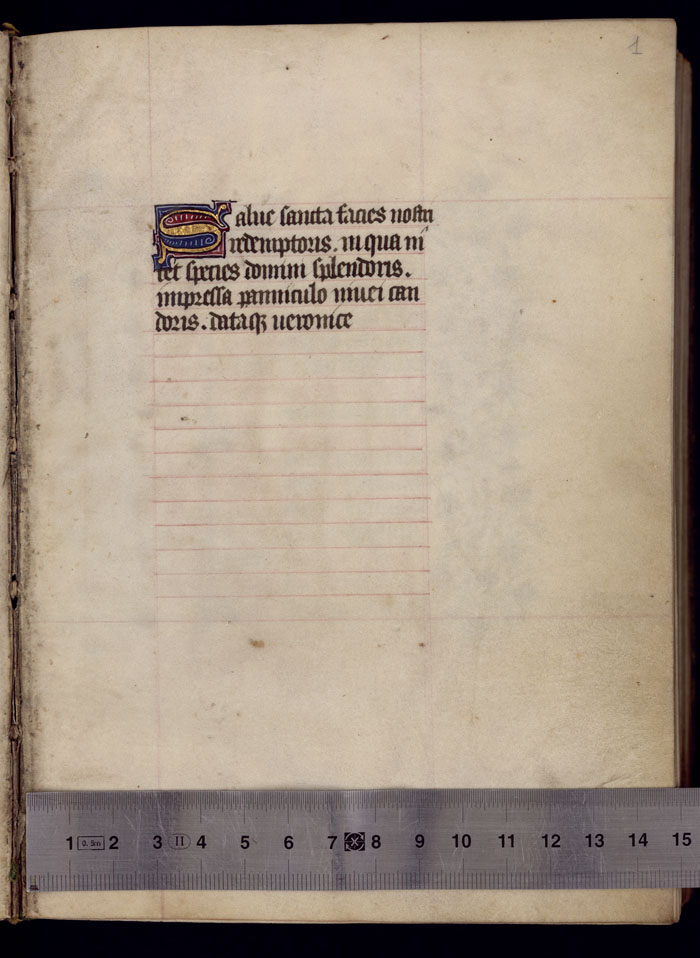 1
Salue sancta facies nostri
redemptoris. in qua ni
tet species domini splendoris.
impressa panniculo niuei can
doris. dataqꝫ ueronice
1 0.5m 2 3 II 4 5 6 7 8 9 10 11 12 13 14 15